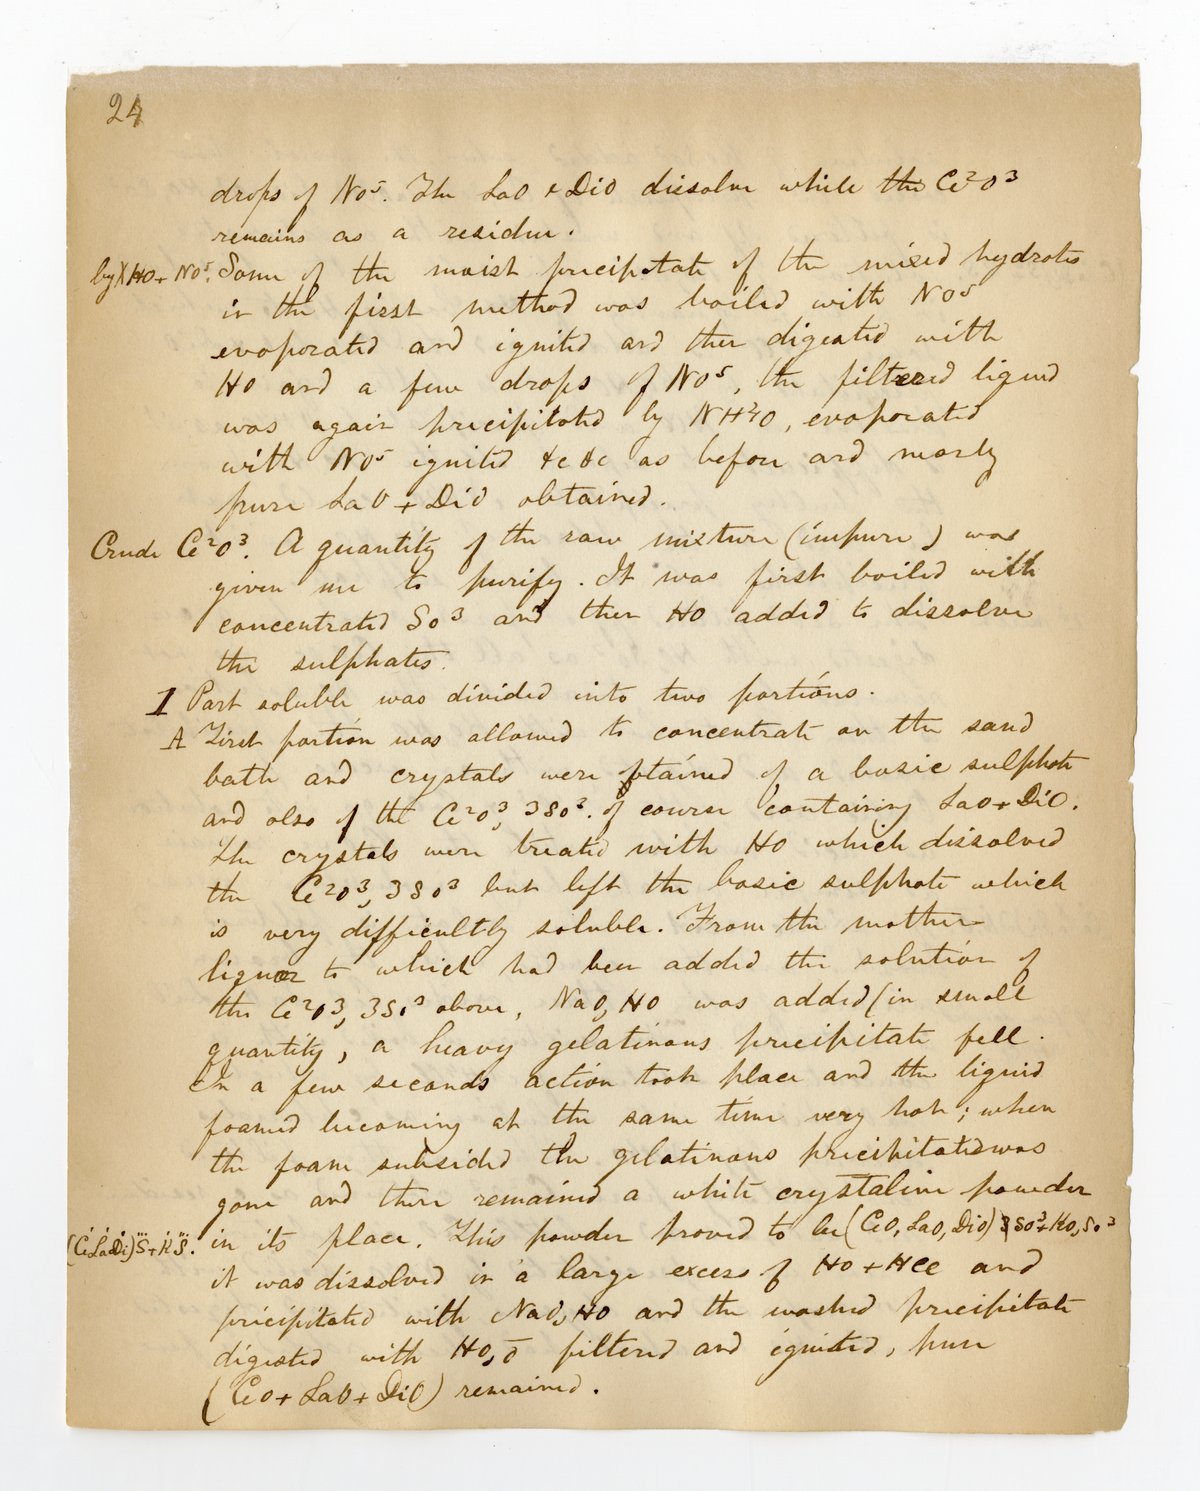 24
drops of NO⁵. The LaO & DiO dissolve while the Ce²O³
remains as a residue.
by HO + NO⁵. Some of the moist precipitate of the mixed hydrates
in the first method was boiled with NO⁵
evaporated and ignited and then digested with
HO and a few drops of NO⁵, the filtered liquid
was again precipitated by NH⁴O, evaporated
with NO⁵ ignited &c &c as before and nearly
pure LaO + DiO obtained.
Crude Ce²O³. A quantity of the raw mixture (impure) was
given me to purify. It was first boiled with
concentrated SO³ and then HO added to dissolve
the sulphates.
1 Part soluble was divided into two portions.
A First portion was allowed to concentrate on the sand
bath and crystals were obtained of a basic sulphate
and also of the Ce²O³, 3SO³. of course containing LaO + DiO.
The crystals were treated with HO which dissolved
the Ce²O³, 3SO³ but left the basic sulphate which
is very difficultly soluble. From the mother
liquor to which had been added the solution of
the Ce²O³, 3SO³ above, NaO, HO was added (in small
quantity, a heavy gelatinous precipitate fell.
In a few seconds action took place and the liquid
foamed becoming at the same time very hot; when
the foam subsided the gelatinous precipitate was
gone and there remained a white crystaline powder
(Ċe L̇a Ḋi) S⃛ + K̇ S⃛. in its place. This powder proved to be (CeO, LaO, DiO) SO³ + KO, SO³
it was dissolved in a large excess of HO + HCl and
precipitated with NaO, HO and the washed precipitate
digested with HO, Ō filtered and ignited, pure
(CeO + LaO + DiO) remained.